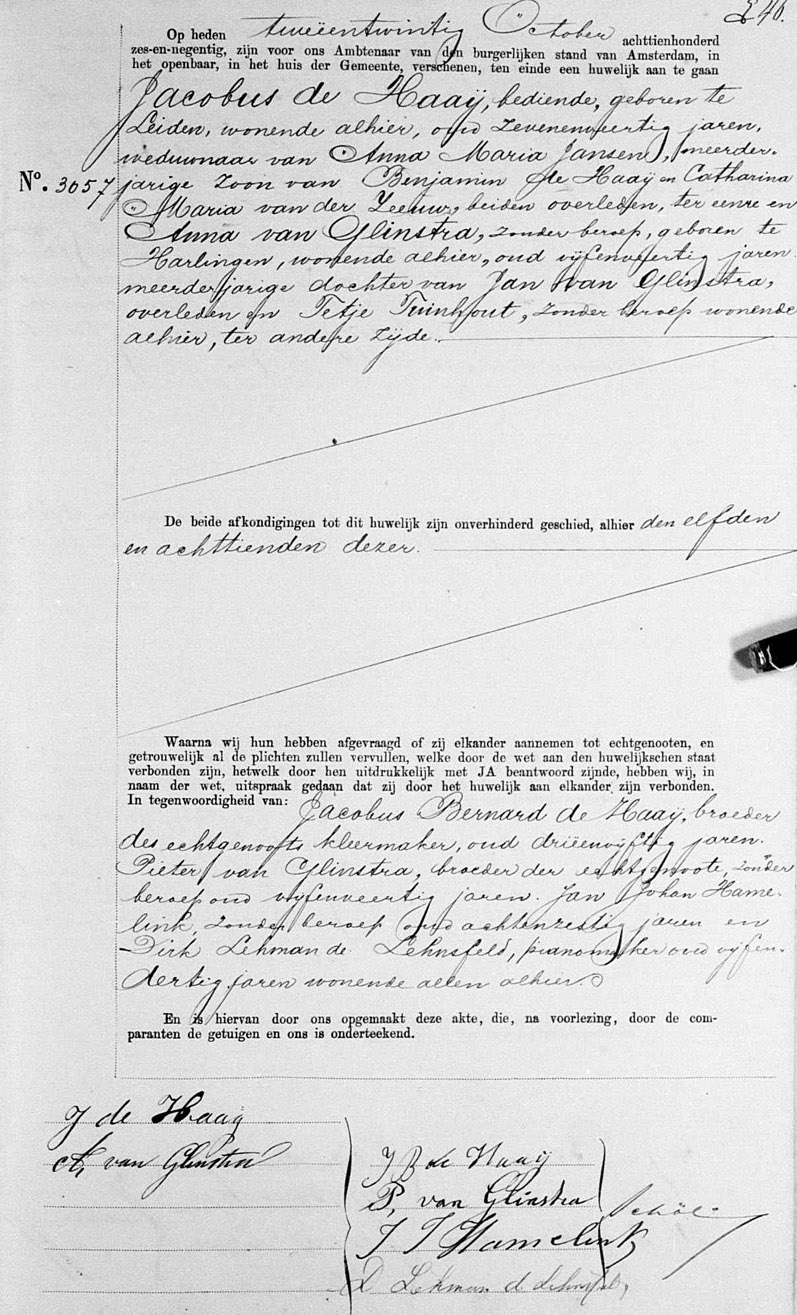 Op heden tweeentwintig October achttienhonderd
zes-en-negentig, zijn voor ons Ambtenaar van den burgerlijken stand van Amsterdam, in
het openbaar, in het huis der Gemeente, verschenen, ten einde een huwelijk aan te gaan
Jacobus de Haaÿ, bediende, geboren te
Leiden, wonende alhier, oud zevenenveertig jaren,
weduwnaar van Anna Maria Jansen, meerder-
No. 3057 jarige zoon van Benjamin de Haaÿ en Catharina
Maria van der Zeeuw, beiden overleden, ter eenre en
Anna van Glinstra, zonder beroep, geboren te
Harlingen, wonende alhier, oud vijfenveertig jaren
meerderjarige dochter van Jan van Glinstra,
overleden en Tetje Tuinhout, zonder beroep wonende
alhier, ter andere zijde.
De beide afkondigingen tot dit huwelijk zijn onverhinderd geschied, alhier den elfden
en achttienden dezer.
Waarna wij hun hebben afgevraagd of zij elkander aannemen tot echtgenooten, en
getrouwelijk al de plichten zullen vervullen, welke door de wet aan den huwelijkschen staat
verbonden zijn, hetwelk door hen uitdrukkelijk met JA beantwoord zijnde, hebben wij, in
naam der wet, uitspraak gedaan dat zij door het huwelijk aan elkander zijn verbonden.
In tegenwoordigheid van: Jacobus Bernard de Haaÿ, broeder
des echtgenoots kleermaker, oud drieenvijftig jaren.
Pieter van Glinstra, broeder der echtgenoote, zonder
beroep oud vijfenveertig jaren. Jan Johan Hame-
link, zonder beroep oud achtenzestig jaren en
Dirk Lehman de Lehnsfeld, pianomaker oud vijfen-
dertig jaren wonende allen alhier.
En is hiervan door ons opgemaakt deze akte, die, na voorlezing, door de com-
paranten de getuigen en ons is onderteekend.
J de Haaij
A, van Glinstra
J B de Haaij
P, van Glinstra
J J Hamelink
D Lehman d Lehnsfeld,